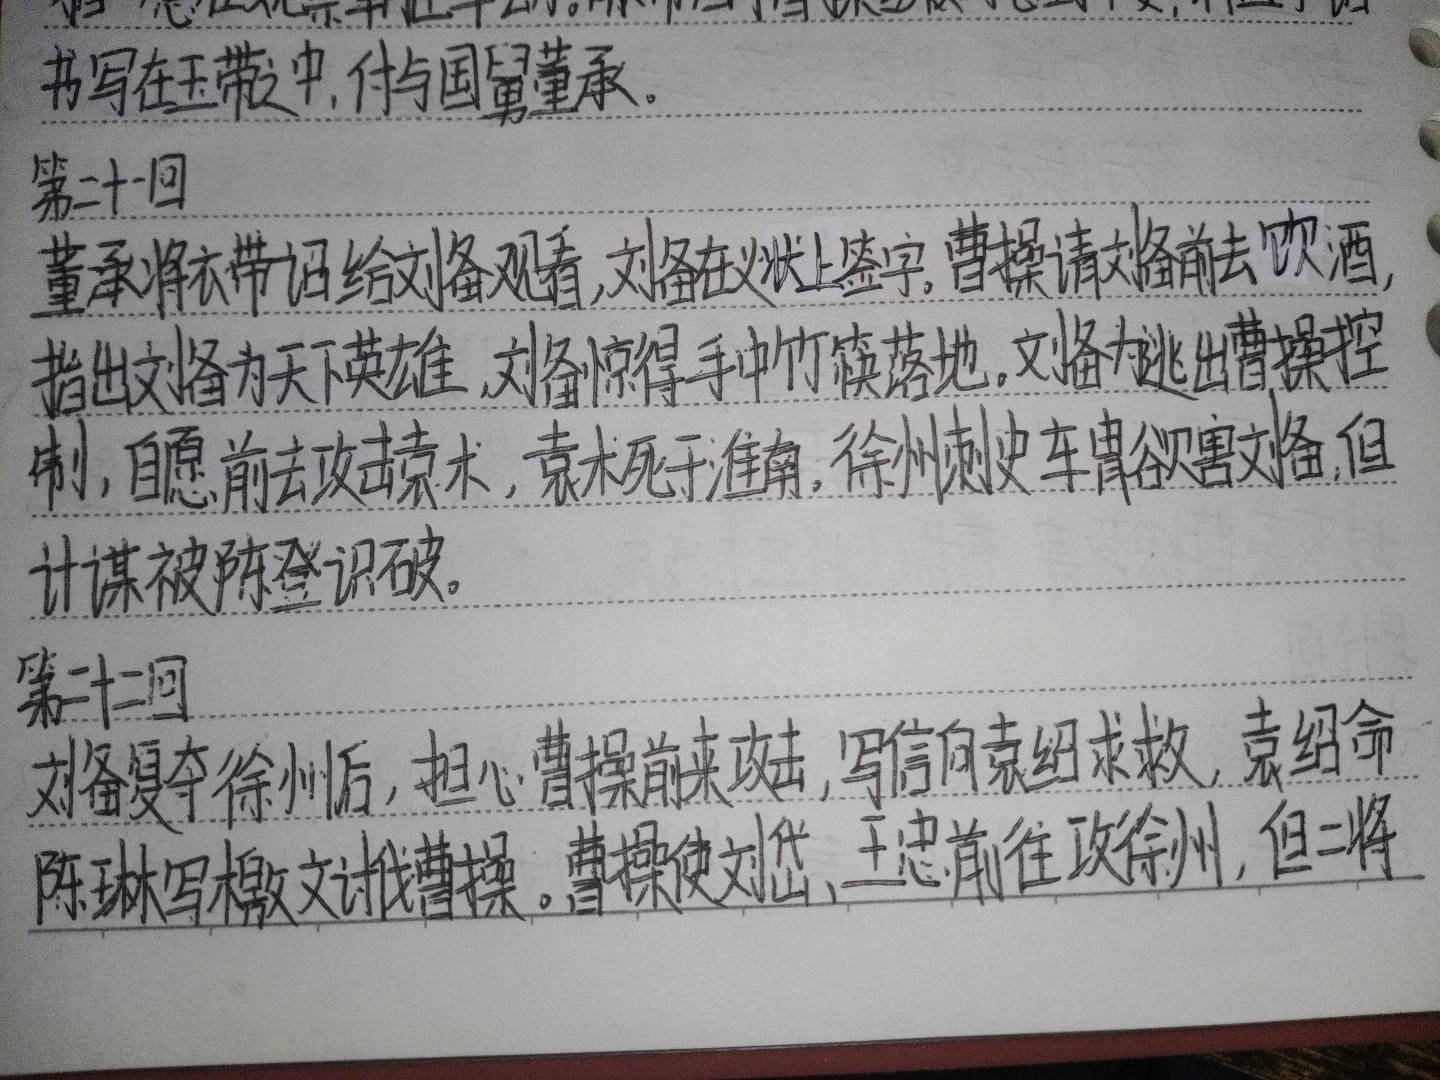 书写在玉带之中，付与国舅董承。
第二十一回
董承将衣带诏给刘备观看，刘备在义状上签字。曹操请刘备前去饮酒，
指出刘备为天下英雄，刘备惊得手中竹筷落地。刘备为逃出曹操控
制，自愿前去攻击袁术，袁术死于淮南。徐州刺史车胄欲害刘备，但
计谋被陈登识破。
第二十二回
刘备复夺徐州后，担心曹操前来攻击，写信向袁绍求救，袁绍命
陈琳写檄文讨伐曹操。曹操使刘岱、王忠前往攻徐州，但二将